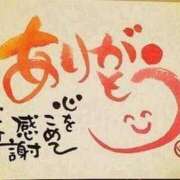 ありがとう
心をこめて
感謝